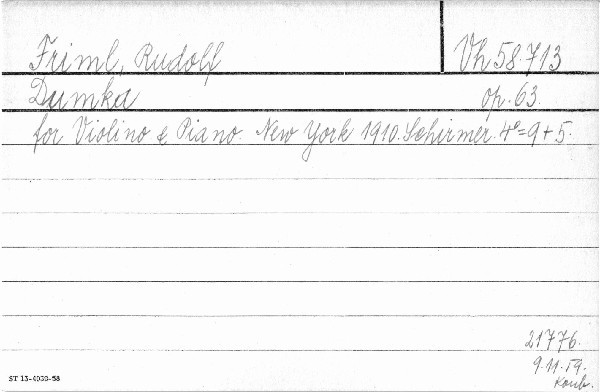 Friml, Rudolf Vh 58.713
Dumka op. 63.
for Violino & Piano. New York 1910. Schirmer. 4°=9+5.
21776.
9.11.59.
ST 13-4030-58